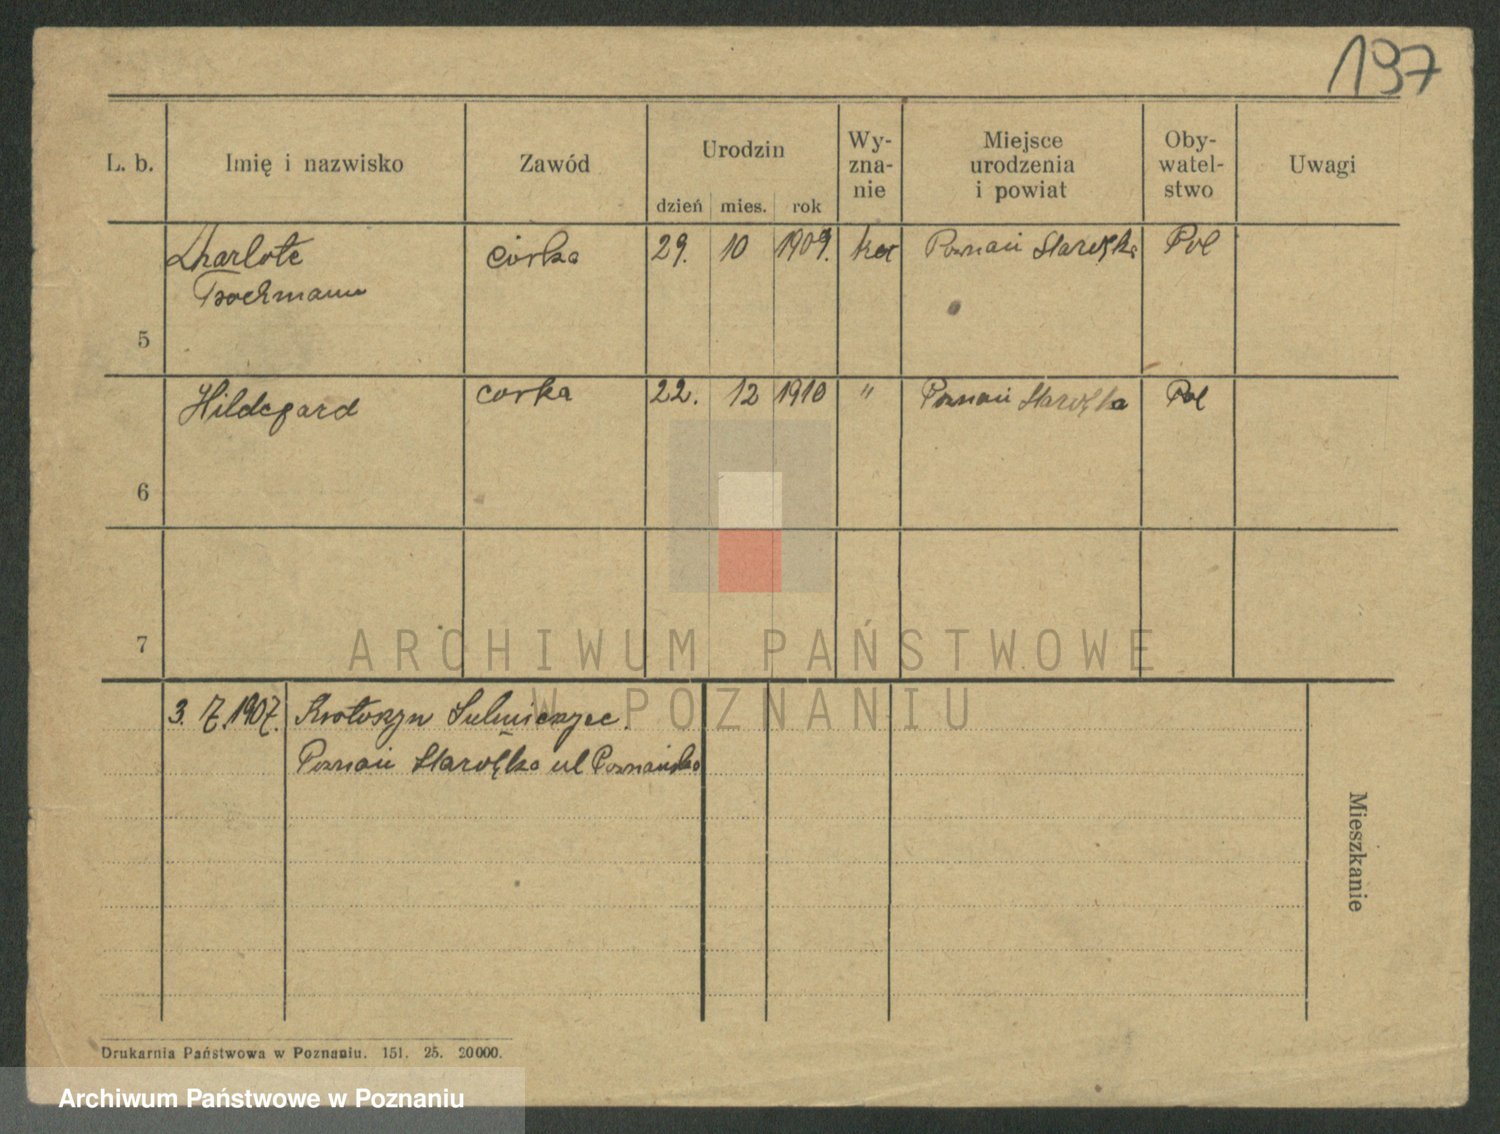 197
L. b. Imię i nazwisko Zawód Urodzin Wy-zna-nie Miejsce urodzenia i powiat Oby-watel-stwo Uwagi
dzień mies. rok
Charlote córka 29. 10 1909. Poznań Starołęka Pol
5
Hildegard corka 22. 12 1910 " Poznań Starołęka Pol
6
7
ARCHIWUM PAŃSTWOWE
W POZNANIU
3. 7. 1907. Krotoszyn
Poznań Starołęka ul Poznańska
Mieszkanie
Drukarnia Państwowa w Poznaniu. 151. 25. 20000.
Archiwum Państwowe w Poznaniu